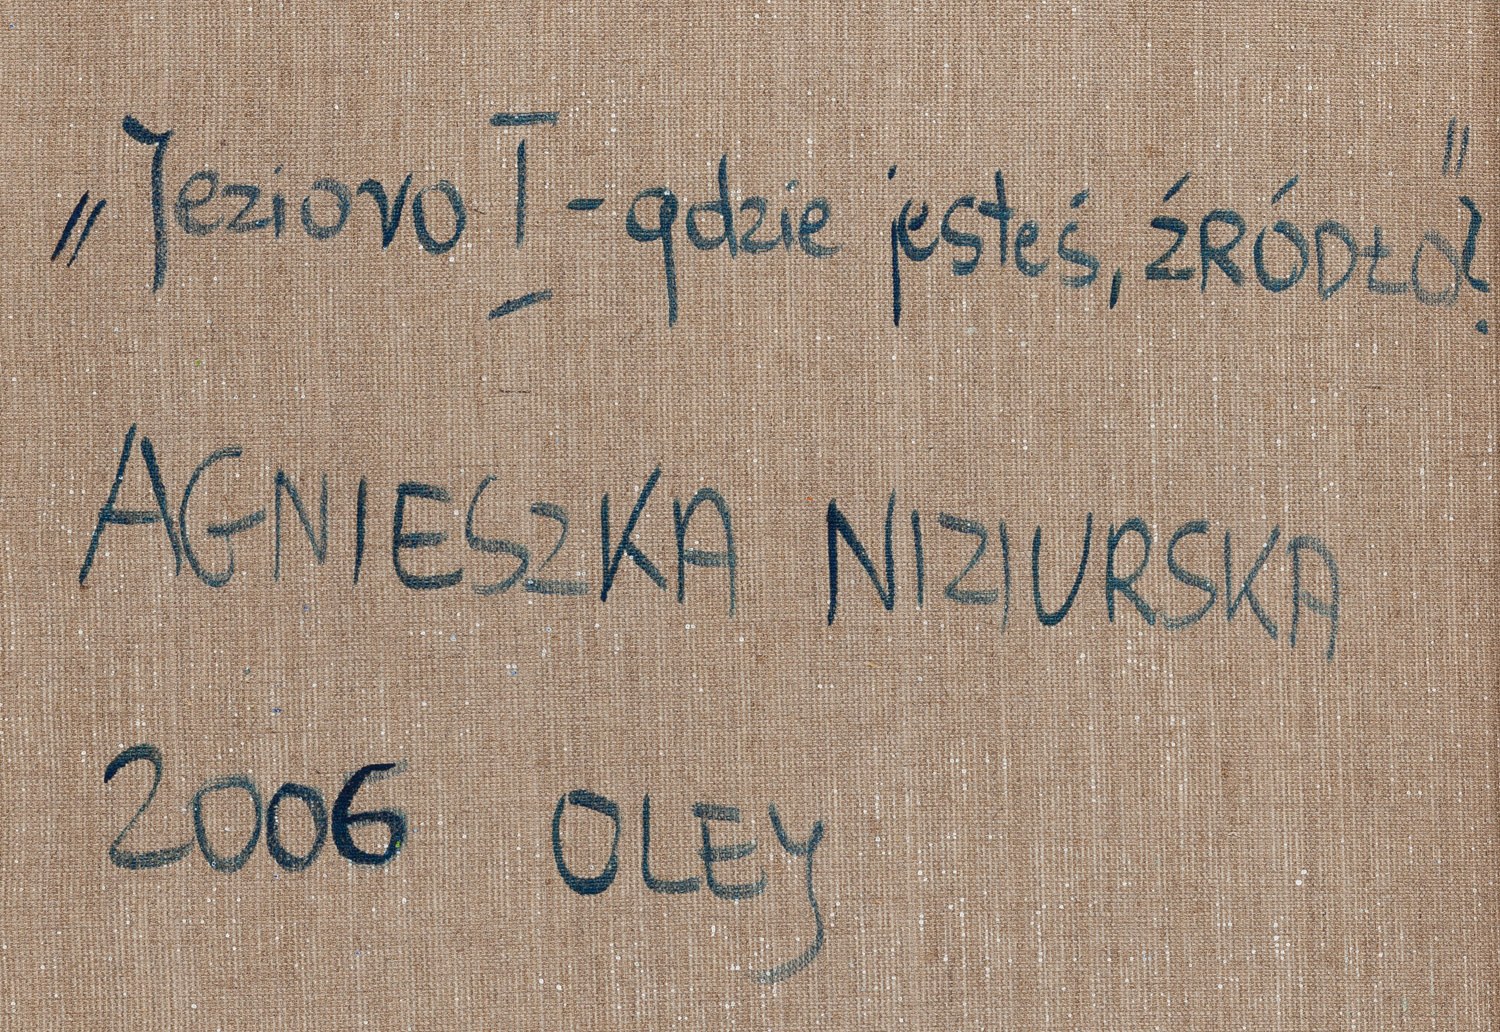 „Jezioro I - gdzie jesteś, źRÓDŁO?"
AGNIESZKA NIZIURSKA
2006 OLEY